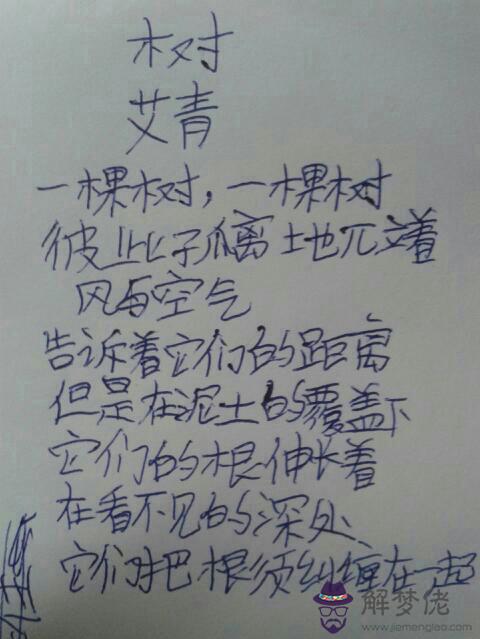 树
艾青
一棵树，一棵树
彼此孤离土地兀立着
风与空气
告诉着它们的距离
但是在泥土的覆盖下
它们的根伸长着
在看不见的深处
它们把根须纠缠在一起
解梦佬
www.jiemenglao.com